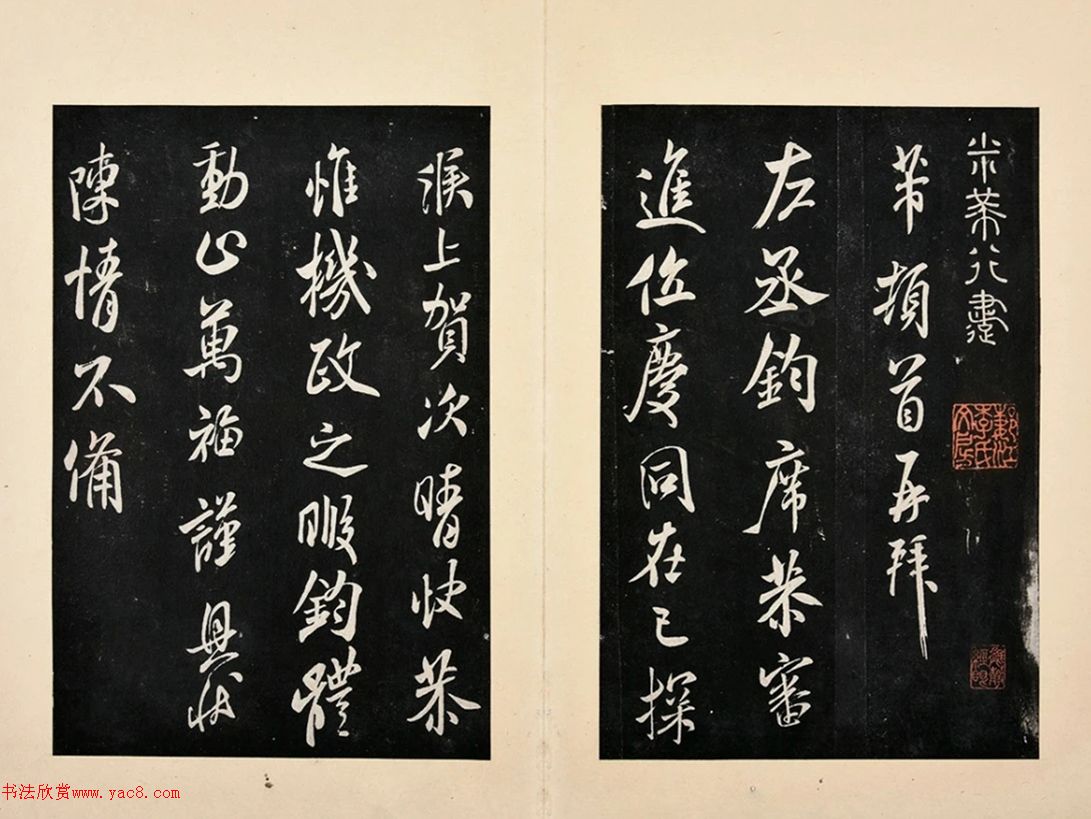 米芾行書
芾頓首再拜
左丞鈞席恭審
進位慶同在已探
候上賀次晴快恭
惟機政之暇鈞體
動止萬福謹具狀
陳情不備
书法欣赏www.yac8.com